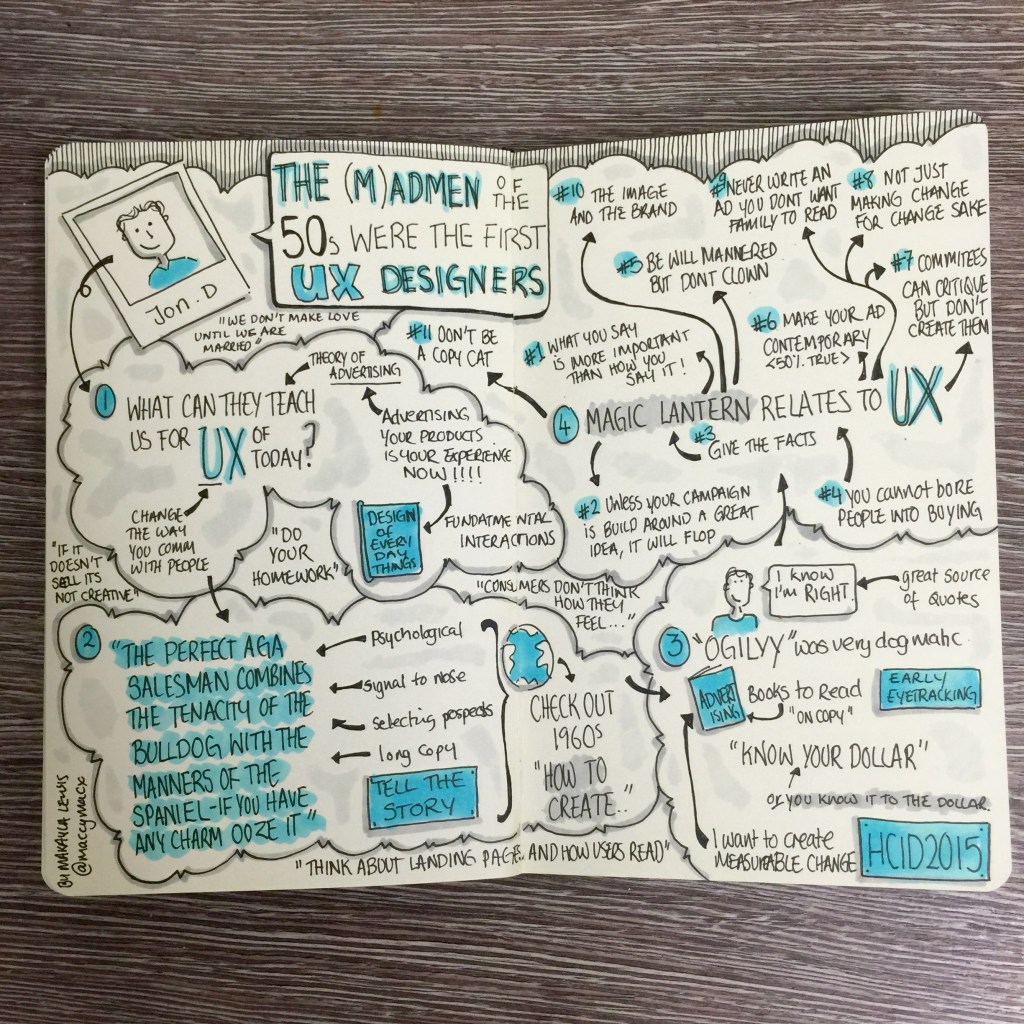 THE (M)ADMEN OF THE
50s WERE THE FIRST
UX DESIGNERS
Jon.D
"WE DON'T MAKE LOVE
UNTIL WE ARE
MARRIED"
1
WHAT CAN THEY TEACH
US FOR UX OF
TODAY?
THEORY OF
ADVERTISING
ADVERTISING
YOUR PRODUCTS
IS YOUR EXPERIENCE
NOW!!!!
CHANGE
THE WAY
YOU COMM
WITH PEOPLE
"DO
YOUR
HOMEWORK"
DESIGN
OF
EVERY
DAY
THINGS
FUNDATMENTAL
INTERACTIONS
"IF IT
DOESN'T
SELL ITS
NOT CREATIVE"
"CONSUMERS DON'T THINK
HOW THEY
FEEL..."
2
"THE PERFECT AGA
SALESMAN COMBINES
THE TENACITY OF THE
BULLDOG WITH THE
MANNERS OF THE
SPANIEL-IF YOU HAVE
ANY CHARM OOZE IT"
Psychological
signal to nose
selecting prospects
long copy
TELL THE
STORY
CHECK OUT
1960s
"HOW TO
CREATE.."
"THINK ABOUT LANDING PAGES AND HOW USERS READ"
BY MAKAYLA LEWIS
@maccymacx
3
I KNOW
I'M RIGHT
great source
of Quotes
"OGILVY" was very dogmatic
ADVERT
ISING
Books to Read
"ON COPY"
EARLY
EYETRACKING
"KNOW YOUR DOLLAR"
OR YOU KNOW IT TO THE DOLLAR.
I want to create
MEASURABLE CHANGE
HCID2015
4
MAGIC LANTERN RELATES TO UX
#1 WHAT YOU SAY
IS MORE IMPORTANT
THAN HOW YOU
SAY IT!
#2 UNLESS YOUR CAMPAIGN
IS BUILD AROUND A GREAT
IDEA, IT WILL FLOP
#3
GIVE THE FACTS
#4 YOU CANNOT BORE
PEOPLE INTO BUYING
#5 BE WILL MANNERED
BUT DONT CLOWN
#6 MAKE YOUR AD
CONTEMPORARY
<50% TRUE>
#7 COMMITEES
CAN CRITIQUE
BUT DON'T
CREATE THEM
#8 NOT JUST
MAKING CHANGE
FOR CHANGE SAKE
#9 NEVER WRITE AN
AD YOU DONT WANT
FAMILY TO READ
#10 THE IMAGE
AND THE BRAND
#11 DON'T BE
A COPY CAT